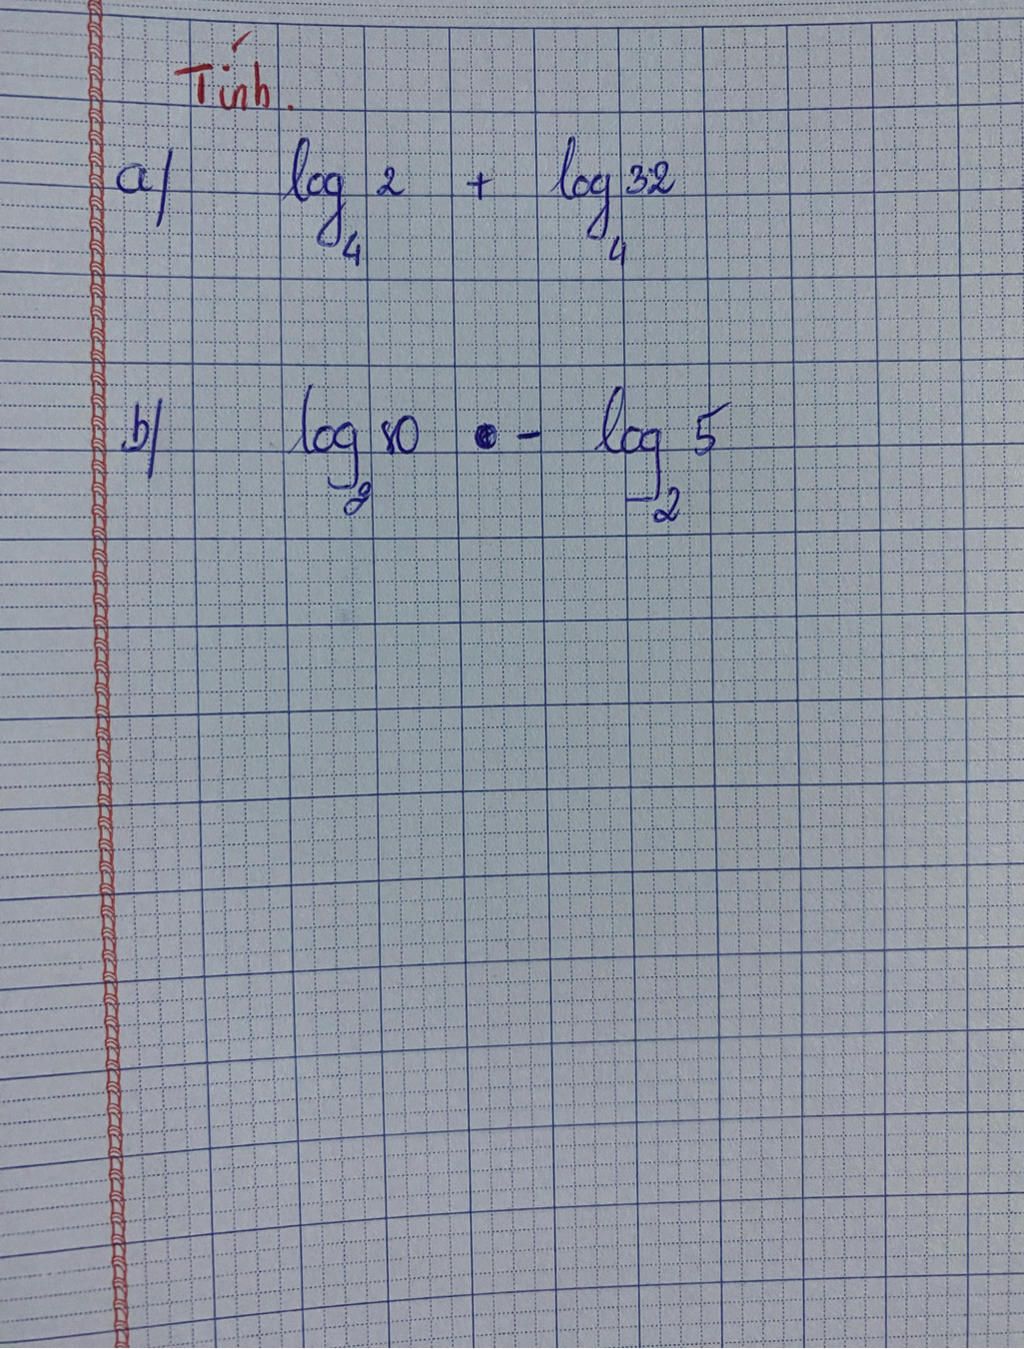 Tính.
a/ log₄ 2 + log₄ 32
b/ log₂ 80 - log₂ 5